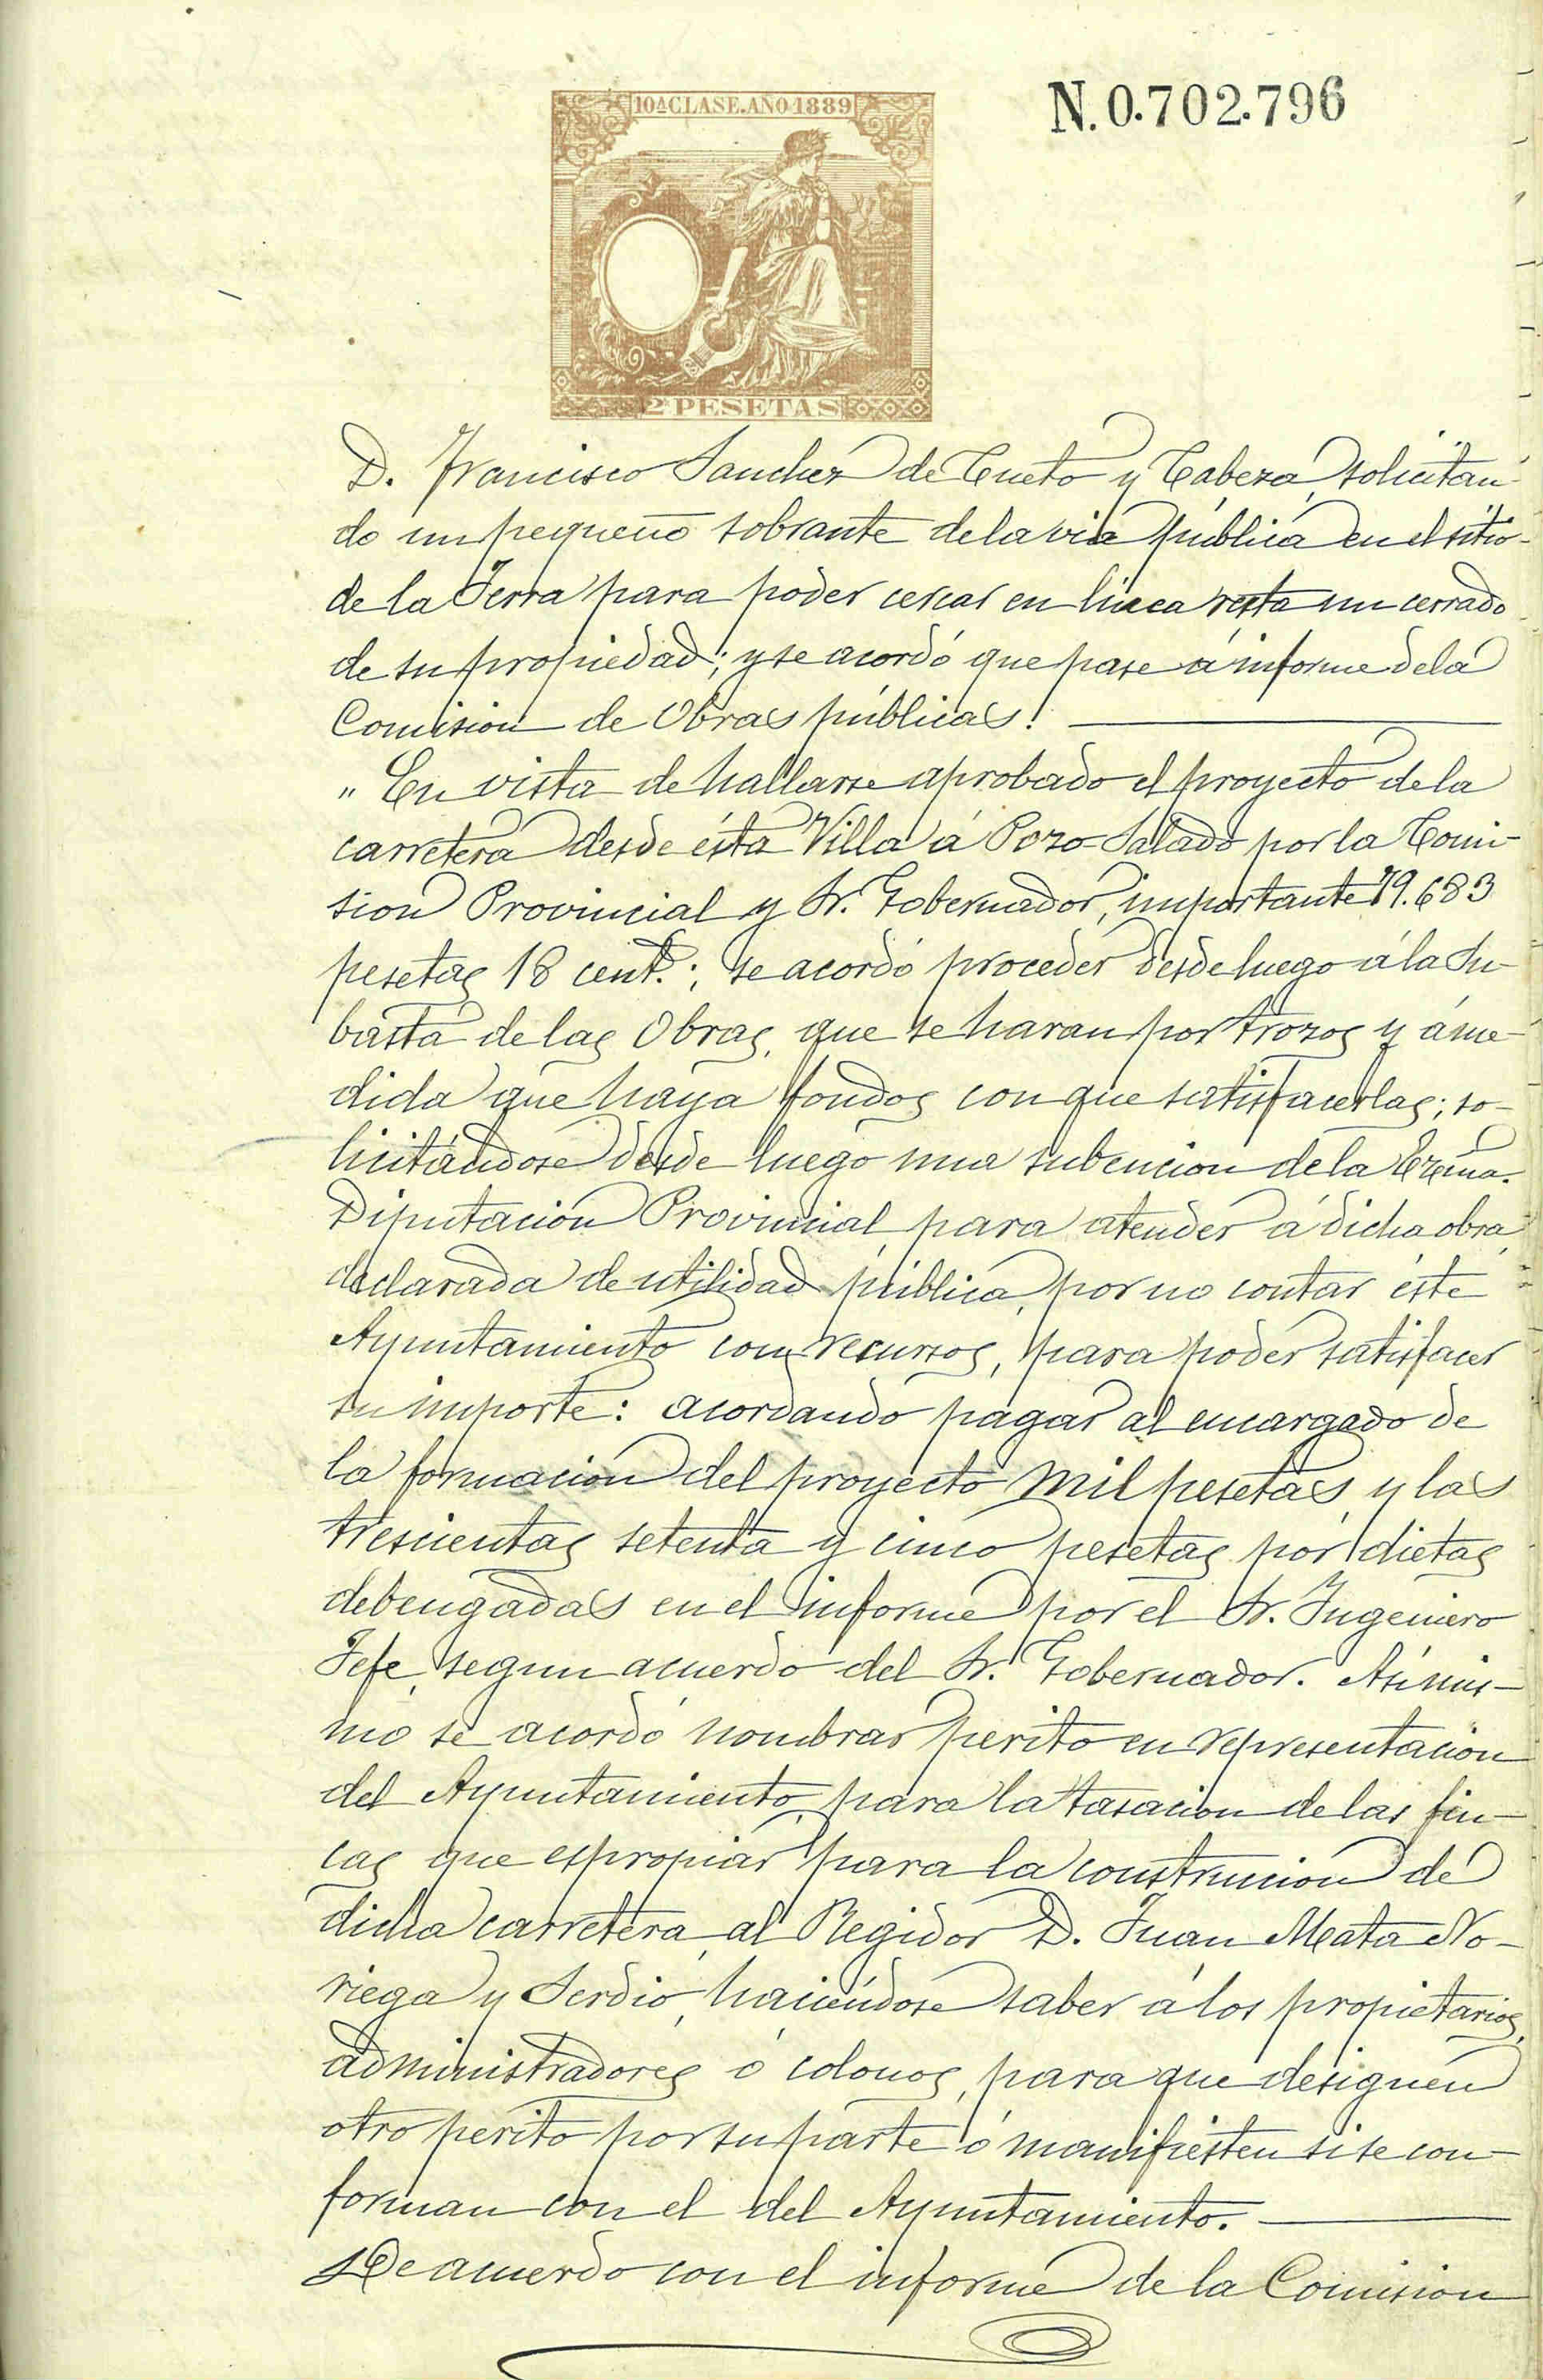 10ª CLASE. AÑO 1889
N.0.702.796
2 PESETAS
D. Francisco Sanchez de Cueto y Cabeza, solicitan-
do un pequeño sobrante de la via pública en el sitio
de la Serra para poder cercar en línea recta un cerrado
de su propiedad; y se acordó que pase á informe de la
Comision de Obras públicas.
" En vista de hallarse aprobado el proyecto de la
carretera desde ésta Villa á Pozo-Salado por la Comi-
sion Provincial y Sr. Gobernador, importante 19.683
pesetas 18 cent.s; se acordó proceder desde luego á la Su-
basta de las Obras, que se haran por trozos y á me-
dida que haya fondos con que satisfacerlas; so-
licitándose desde luego una subencion de la Excma.
Diputacion Provincial para atender á dicha obra,
declarada de utilidad pública, por no contar éste
Ayuntamiento con recursos, para poder satisfacer
su importe: acordando pagar al encargado de
la formacion del proyecto mil pesetas, y las
trescientas setenta y cinco pesetas por dietas
debengadas en el informe por el Sr. Ingeniero
Jefe, segun acuerdo del Sr. Gobernador. Asimis-
mo se acordó nombrar perito en representacion
del Ayuntamiento, para la tasacion de las fin-
cas que espropiar para la construcion de
dicha carretera, al Regidor D. Juan Mata No-
riega y Serdio, haciéndose saber á los propietarios,
administradores ó colonos, para que designen
otro perito por su parte ó manifiesten si se con-
forman con el del Ayuntamiento.
De acuerdo con el informe de la Comision